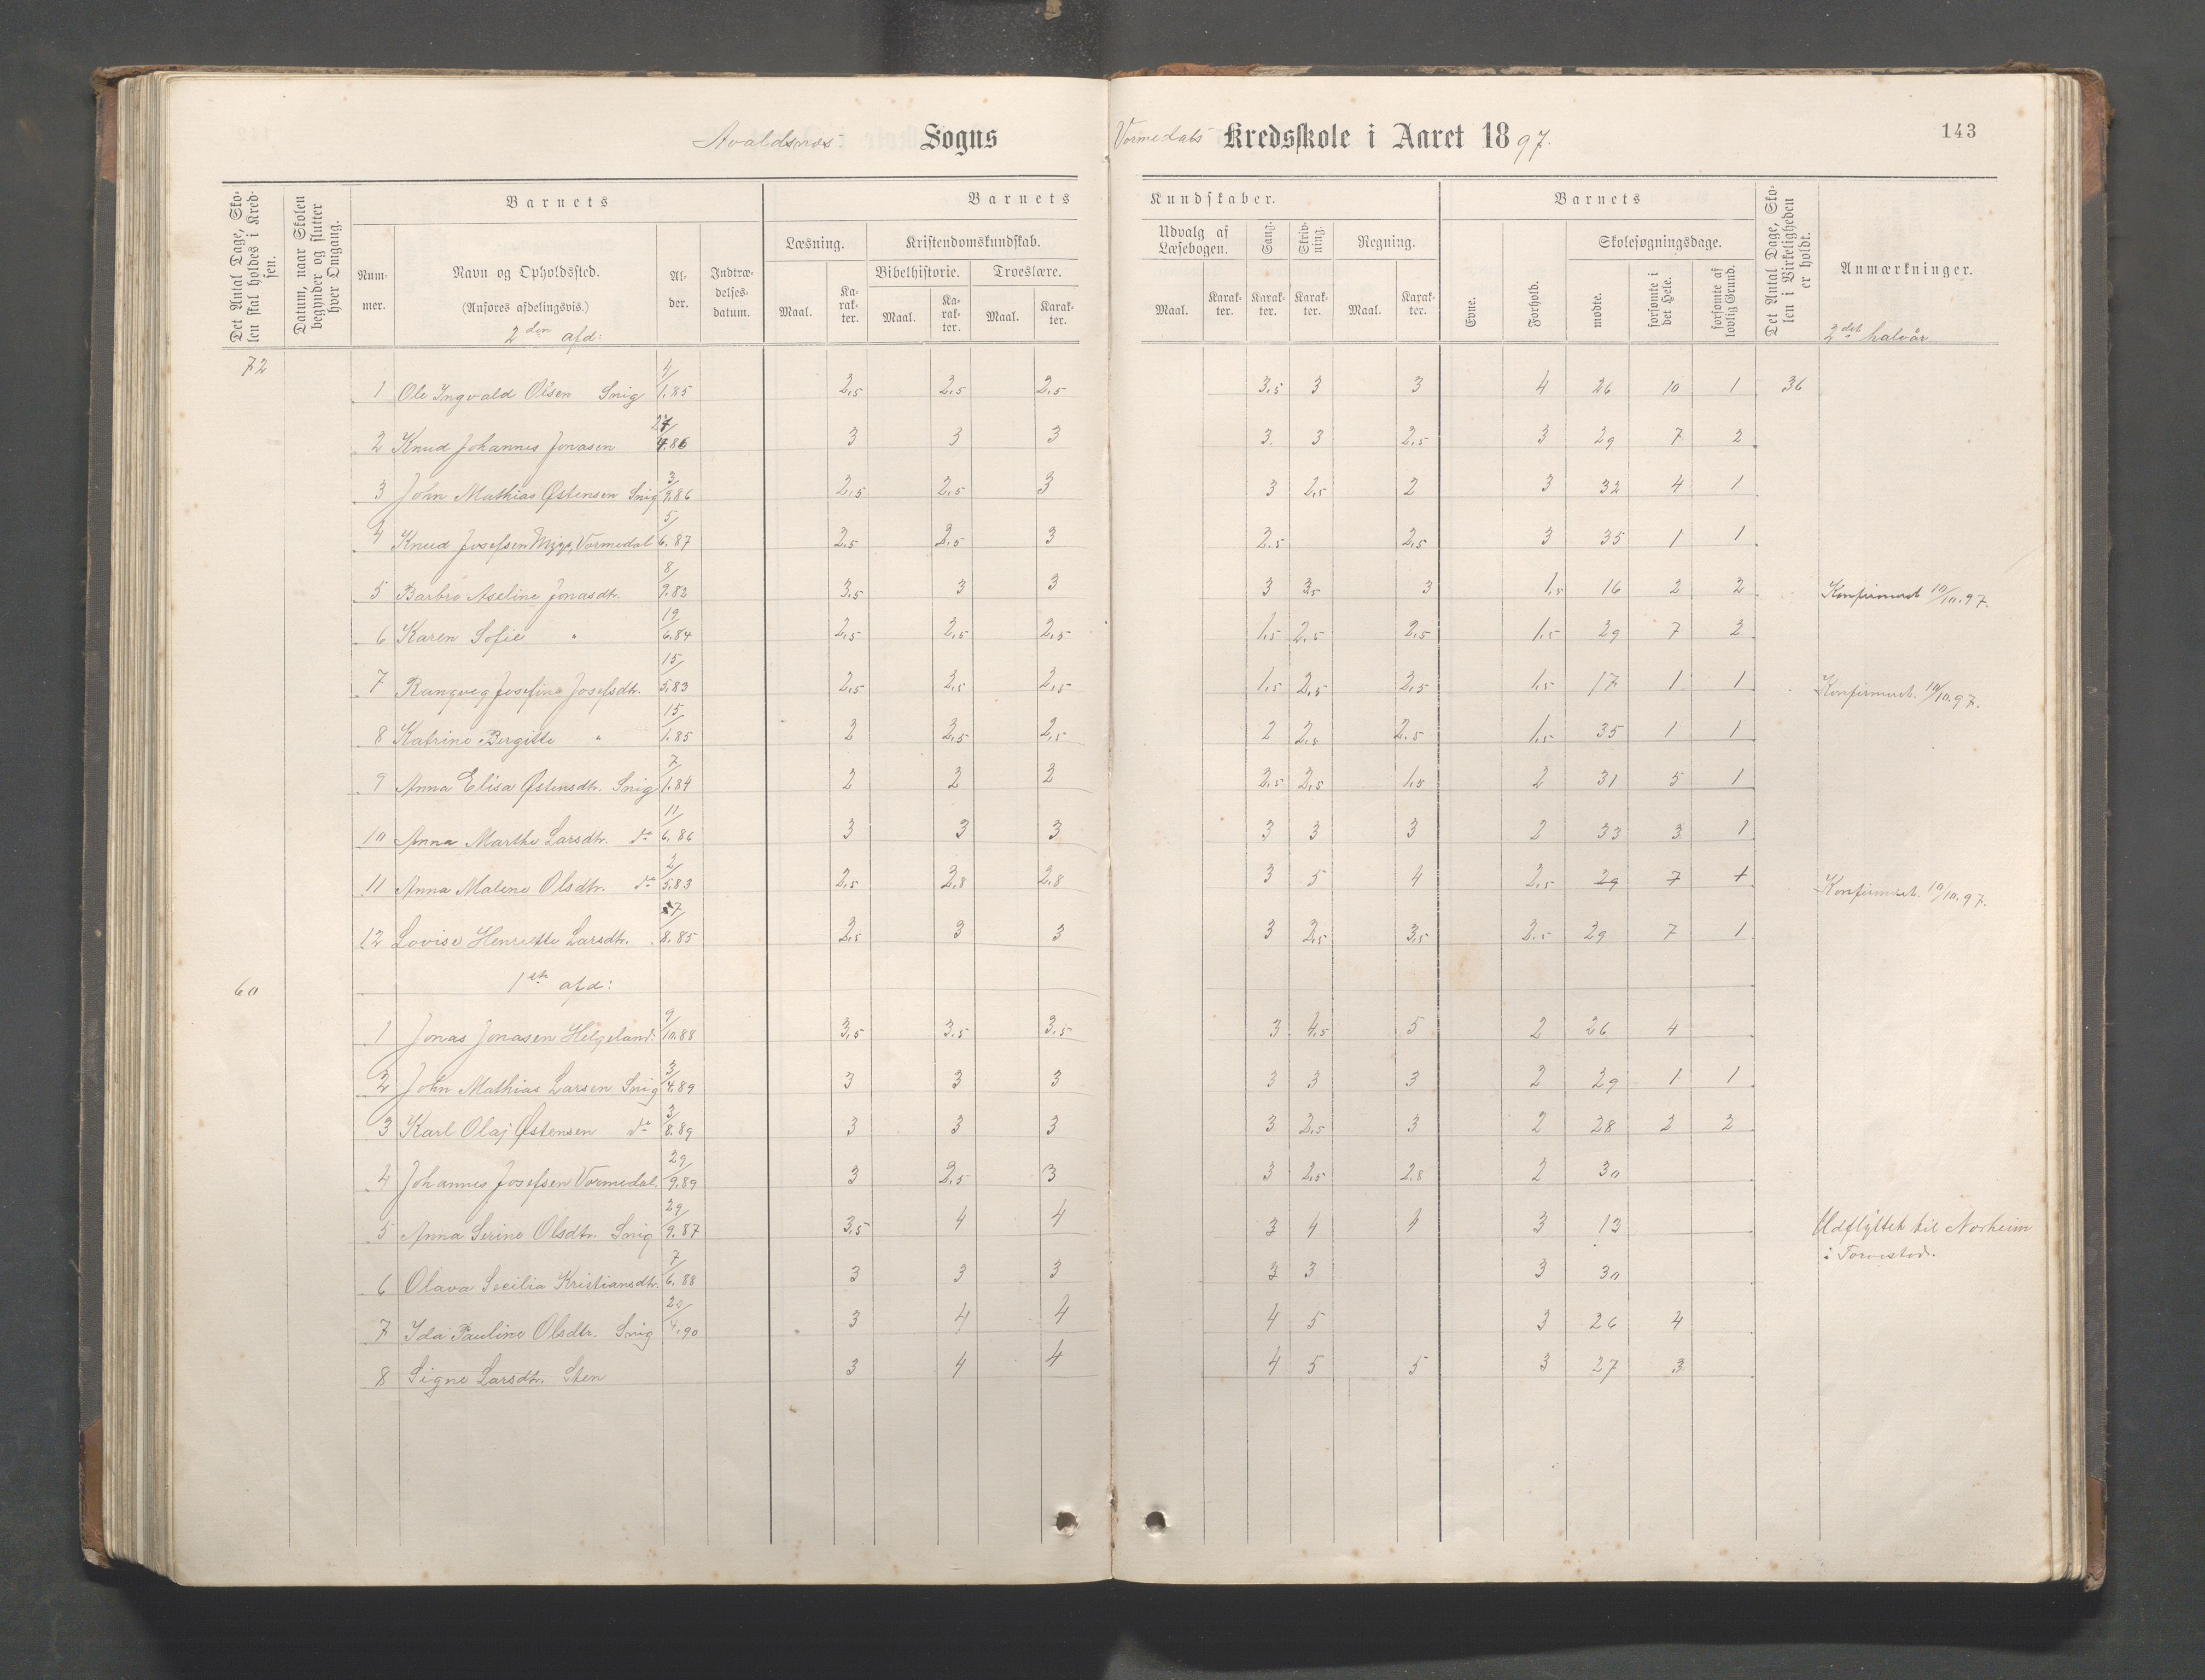 Avaldsnæs Sogns Vormedals Kredsskole i Aaret 1897. 143
Det Antal Dage, Skolen skal holdes i Kredsen.
Datum, naar Skolen begynder og slutter hver Omgang.
Barnets
Barnets Kundskaber.
Barnets
Det Antal Dage, Skolen i Virkeligheden er holdt.
Anmærkninger.
Nummer.
Navn og Opholdssted.
(Anføres afdelingsvis.)
Alder.
Indtrædelsesdatum.
Læsning.
Kristendomskundskab.
Udvalg af Læsebogen.
Sang.
Skrivning.
Regning.
Evne.
Forhold.
Skolesøgningsdage.
Bibelhistorie.
Troeslære.
mødte.
forsømte i det Hele.
forsømte af lovlig Grund.
Maal. Karakter. Maal. Karakter. Maal. Karakter. Maal. Karakter. Karakter. Karakter. Maal. Karakter.
2den afd: 2det halvår
72
1 Ole Ingvald Olsen Snig 4/1.85 2,5 2,5 2,5 3,5 3 3 4 26 10 1 36
2 Knud Johannes Jonasen 27/4.86 3 3 3 3 3 2,5 3 29 7 2
3 John Mathias Østensen Snig 3/9.86 2,5 2,5 3 3 2,5 2 3 32 4 1
4 Knud Josefsen Vormedal 5/6.87 2,5 2,5 3 2,5 2,5 3 35 1 1
5 Barbro Aseline Jonasdtr. 8/9.82 3,5 3 3 3 3,5 3 1,5 16 2 2 Konfirmeret 10/10.97.
6 Karen Sofie " 19/6.84 2,5 2,5 2,5 1,5 2,5 2,5 1,5 29 7 2
7 Rangveg Josefine Josefsdtr. 15/5.83 2,5 2,5 2,5 1,5 2,5 2,5 1,5 17 1 1 Konfirmeret. 10/10.97.
8 Katrine Bergitte " 15/1.85 2 2,5 2,5 2 2,5 2,5 1,5 35 1 1
9 Anna Elisa Østensdtr. Snig 7/1.84 2 2 2 2,5 2,5 1,5 2 31 5 1
10 Anna Marthe Larsdtr. do 11/6.86 3 3 3 3 3 3 2 33 3 1
11 Anna Malene Olsdtr. do 2/5.83 2,5 2,8 2,8 3 5 4 2,5 29 7 1 Konfirmeret. 10/10.97.
12 Lovise Henriette Larsdtr. 7/8.85 2,5 3 3 3 2,5 3,5 2,5 29 7 1
60
1ste afd:
1 Jonas Jonasen Helgeland. 9/10.88 3,5 3,5 3,5 3 4,5 5 2 26 4
2 John Mathias Larsen Snig 3/4.89 3 3 3 3 3 3 2 29 1 1
3 Karl Olaf Østensen do 3/8.89 3 3 3 3 2,5 3 2 28 2 2
4 Johannes Josefsen Vormedal. 29/9.89 3 2,5 3 3 2,5 2,8 2 30
5 Anna Serine Olsdtr. Snig 29/9.87 3,5 4 4 3 4 4 3 13 Udflyttet til Norheim
i Torvestad.
6 Olava Secilia Kristiansdtr. 7/6.88 3 3 3 3 3 3 30
7 Ida Pauline Olsdtr. Snig 20/4.90 3 4 4 4 5 3 26 4
8 Signe Larsdtr. Sten 3 4 4 4 5 5 3 27 3